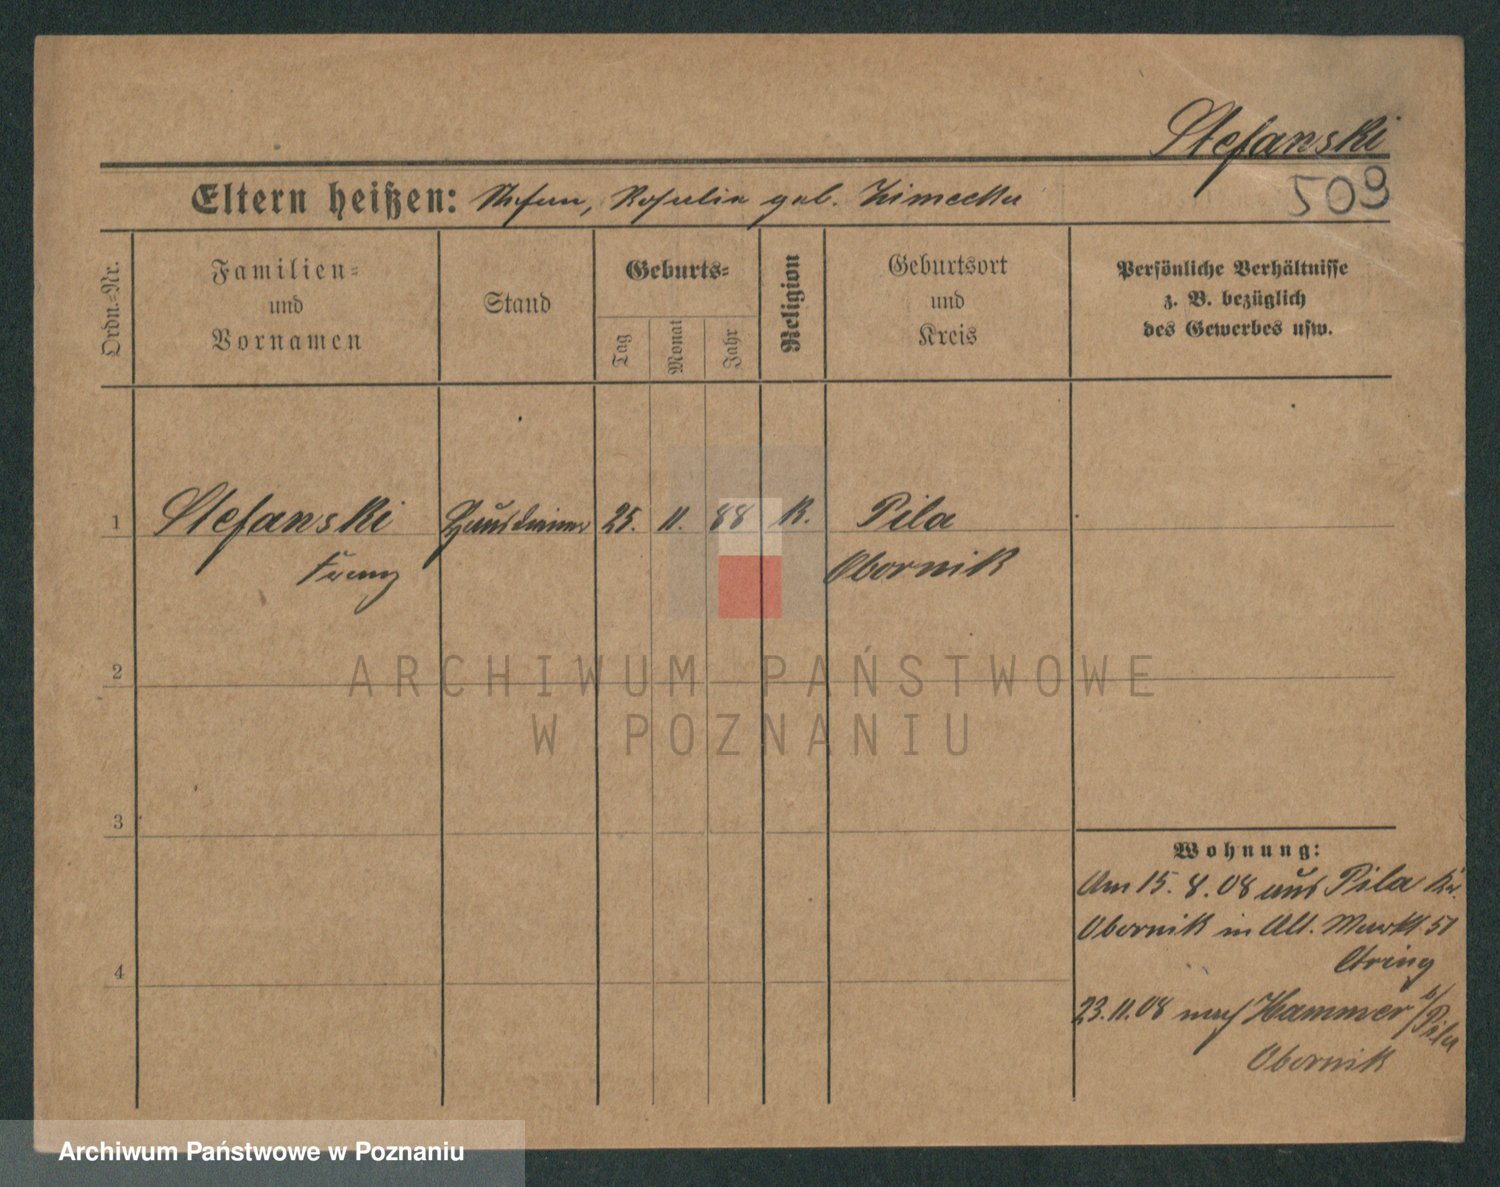 Stefanski
509
Eltern heißen: Stefan, Rosalie geb. Zimecka
Ordn.=Nr.
Familien=
und
Vornamen
Stand
Geburts=
Tag
Monat
Jahr
Religion
Geburtsort
und
Kreis
Persönliche Verhältnisse
z. B. bezüglich
des Gewerbes usw.
1 Stefanski Hausdiener 25. 11. 88 K. Pila
Franz Obornik
2
3
4
Wohnung:
Am 15. 8. 08 aus Pila Kr.
Obornik in Alt. Markt 51
23.11.08 nach Hammer b/Pila
Obornik
ARCHIWUM PAŃSTWOWE
W POZNANIU
Archiwum Państwowe w Poznaniu